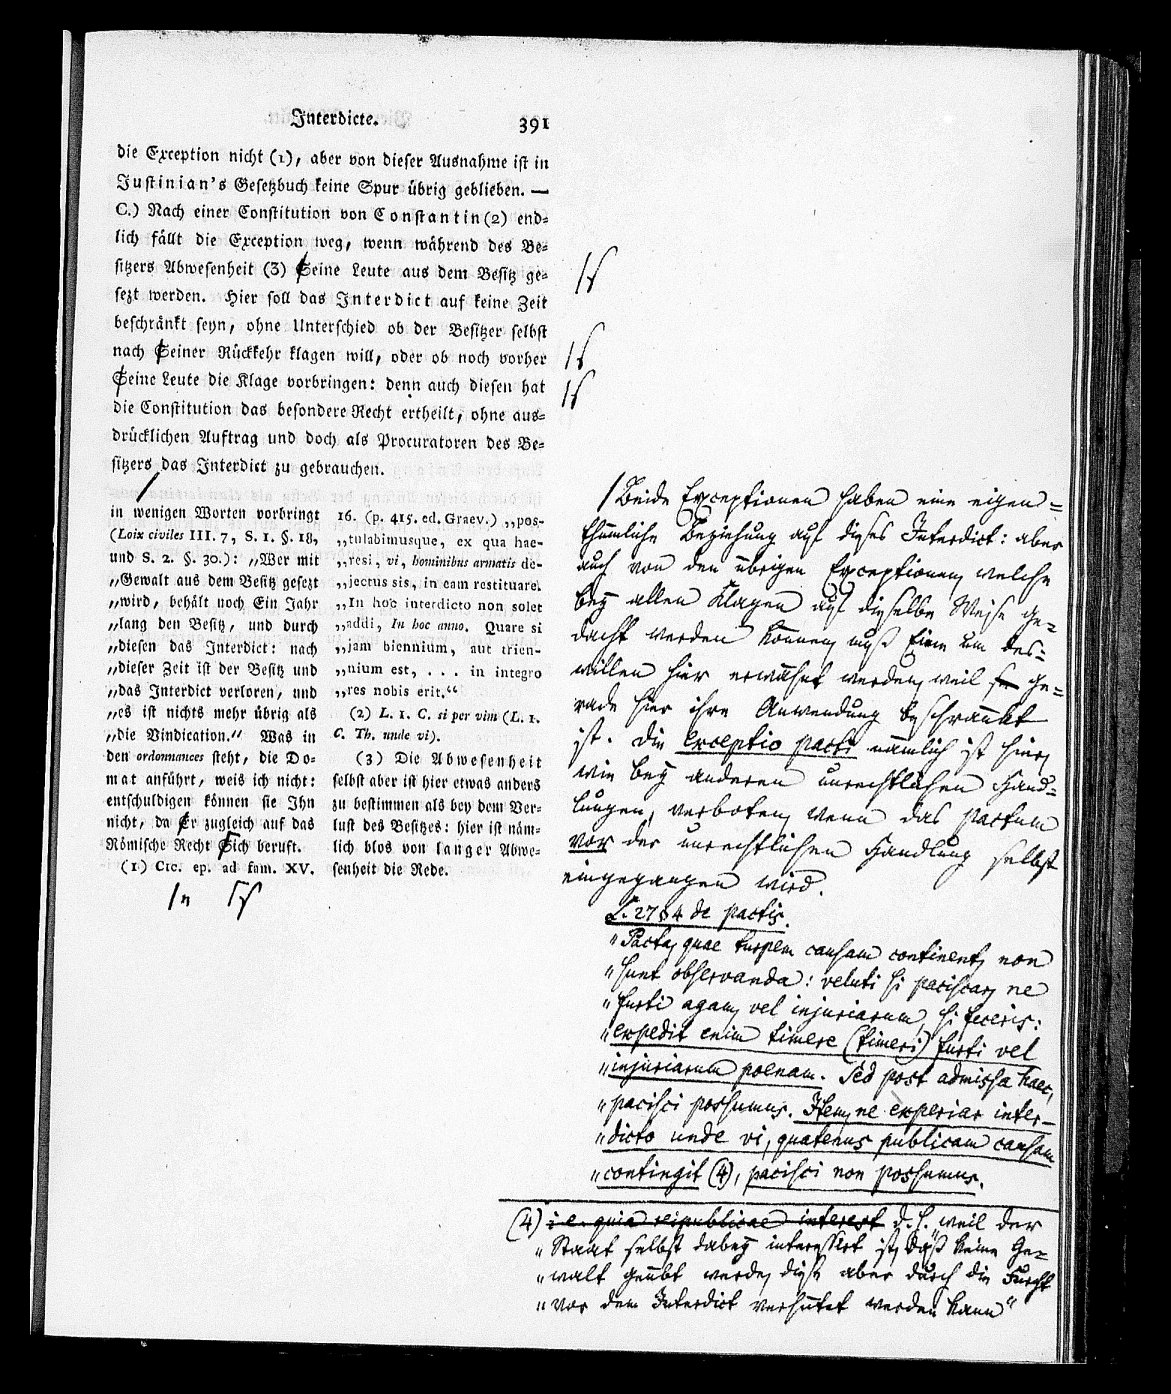 Interdicte. 391
die Exception nicht (1), aber von dieser Ausnahme ist in
Justinian's Gesetzbuch keine Spur übrig geblieben. —
C.) Nach einer Constitution von Constantin (2) end-
lich fällt die Exception weg, wenn während des Be-
sitzers Abwesenheit (3) Seine Leute aus dem Besitz ge-
sezt werden. Hier soll das Interdict auf keine Zeit
beschränkt seyn, ohne Unterschied ob der Besitzer selbst
nach Seiner Rückkehr klagen will, oder ob noch vorher
Seine Leute die Klage vorbringen: denn auch diesen hat
die Constitution das besondere Recht ertheilt, ohne aus-
drücklichen Auftrag und doch als Procuratoren des Be-
sitzers das Interdict zu gebrauchen.
in wenigen Worten vorbringt
(Loix civiles III. 7, S. 1. §. 18,
und S. 2. §. 30.): „Wer mit
„Gewalt aus dem Besitz gesezt
„wird, behält noch Ein Jahr
„lang den Besitz, und durch
„diesen das Interdict: nach
„dieser Zeit ist der Besitz und
„das Interdict verloren, und
„es ist nichts mehr übrig als
„die Vindication.“ Was in
den ordonnances steht, die Do-
mat anführt, weis ich nicht:
entschuldigen können sie Ihn
nicht, da Er zugleich auf das
Römische Recht Sich beruft.
(1) Cic. ep. ad fam. XV.
16. (p. 415. ed. Graev.) „pos-
„tulabimusque, ex qua hae-
„resi, vi, hominibus armatis de-
„jectus sis, in eam restituare.
„In hoc interdicto non solet
„addi, In hoc anno. Quare si
„jam biennium, aut trien-
„nium est, . . . in integro
„res nobis erit.“
(2) L. 1. C. si per vim (L. 1.
C. Th. unde vi).
(3) Die Abwesenheit
selbst aber ist hier etwas anders
zu bestimmen als bey dem Ver-
lust des Besitzes: hier ist näm-
lich blos von langer Abwe-
senheit die Rede.
Beide Exceptionen haben eine eigen-
thümliche Beziehung auf dieses Interdict: aber
auch von den übrigen Exceptionen, welche
bey allen Klagen auf dieselbe Weise ge-
dacht werden können, muß Eine um des-
willen hier erwähnt werden, weil ge-
rade hier ihre Anwendung beschränkt
ist. Die exceptio pacti nämlich ist hier,
wie bey anderen unrechtlichen Hand-
lungen, verboten, wenn das pactum
vor der unrechtlichen Handlung selbst
eingegangen wird.
L. 27 § 4 de pactis.
"Pacta, quae turpem causam continent, non
"sunt observanda: veluti si paciscar, ne
"furti agam, vel injuriarum, si feceris:
"expedit enim timere (timeri) furti vel
"injuriarum poenam. Sed post admissa haec,
"pacisci possumus. Item, ne experiar inter-
"dicto unde vi, quatenus publicam causam
"contingit (4), pacisci non possumus.
(4) i. e. quia reipublicae interest d. h. "weil der
"Staat selbst dabey interessirt ist, daß keine Ge-
"walt geübt werde, diese aber durch die Furcht
"vor dem Interdict verhütet werden kann"